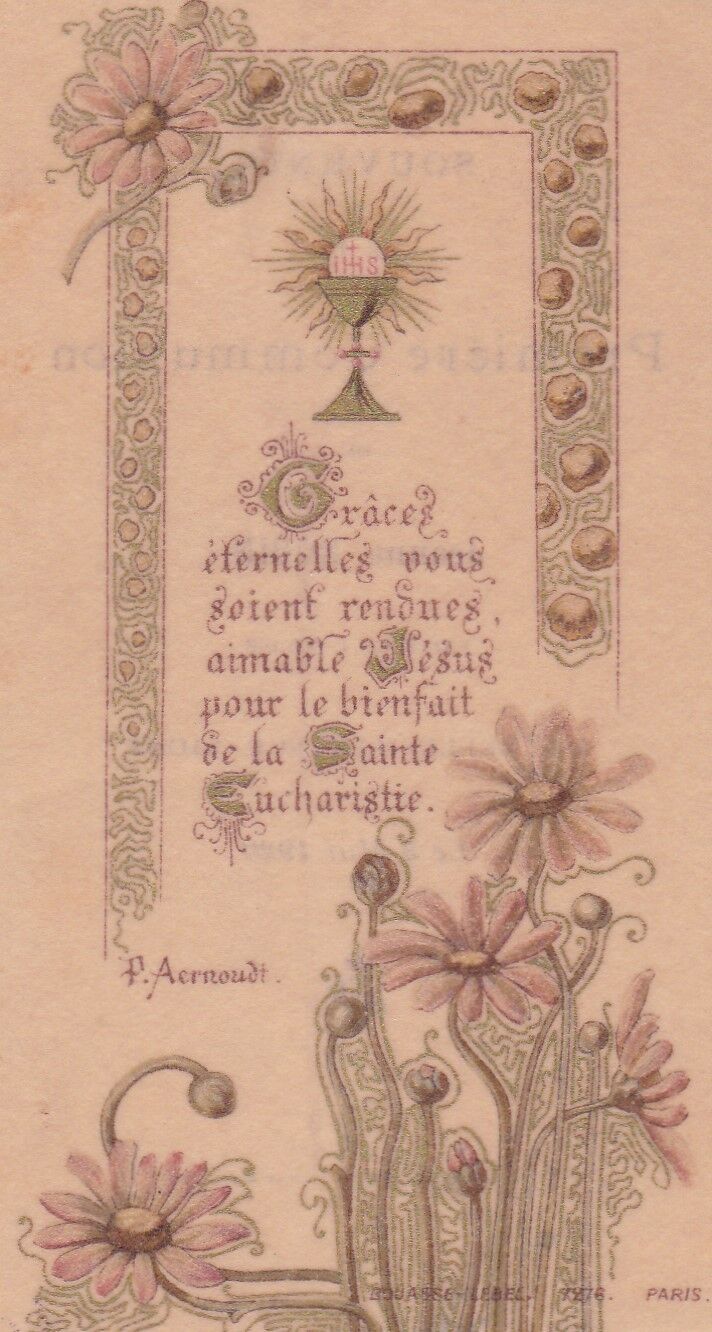 IHS
Grâces
éternelles vous
soient rendues,
aimable Jésus
pour le bienfait
de la Sainte
Eucharistie.
P. Aernoudt.
BOUASSE-LEBEL. PARIS.